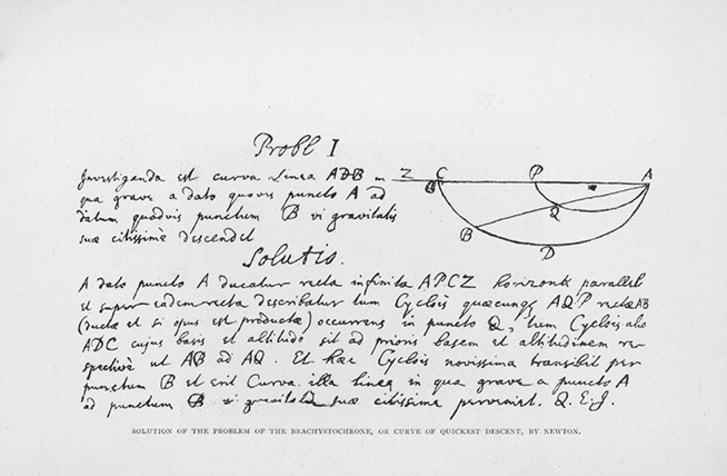 Probl I
Investiganda est curva Linea ADB in
qua grave a dato quovis puncto A ad
datum quodvis punctum B vi gravitatis
suæ citissimè descendet
Z C P A
B Q
B D
Solutio.
A dato puncto A ducatur recta infinita APCZ horizonti parallela
et super eadem recta describatur tum Cyclois quæcunq AQP rectæ AB
(ductæ et si opus est productæ) occurrens in puncto Q, tum Cyclois alia
ADC cujus basis et altitudo sit ad prioris basem et altitudinem res-
pectivè ut AB ad AQ. Et hæc Cyclois novissima transibit per
punctum B et erit Curva illa linea in qua grave a puncto A
ad punctum B vi gravitatis suæ citissime perveniet. Q.E.I.
SOLUTION OF THE PROBLEM OF THE BRACHYSTOCHRONE, OR CURVE OF QUICKEST DESCENT, BY NEWTON.